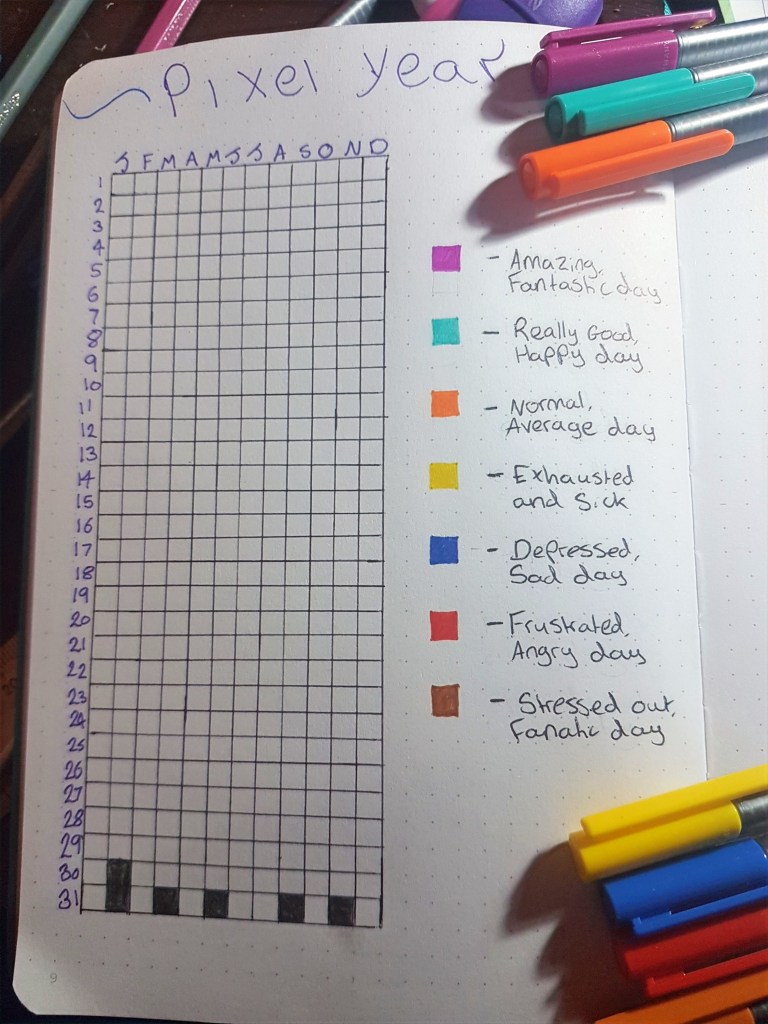 Pixel Year
J F M A M J J A S O N D
1
2
3
4
5
6
7
8
9
10
11
12
13
14
15
16
17
18
19
20
21
22
23
24
25
26
27
28
29
30
31
- Amazing,
Fantastic day
- Really Good,
Happy day
- Normal,
Average day
- Exhausted
and Sick
- Depressed,
Sad day
- Frustrated,
Angry day
- Stressed out,
Fanatic day
9